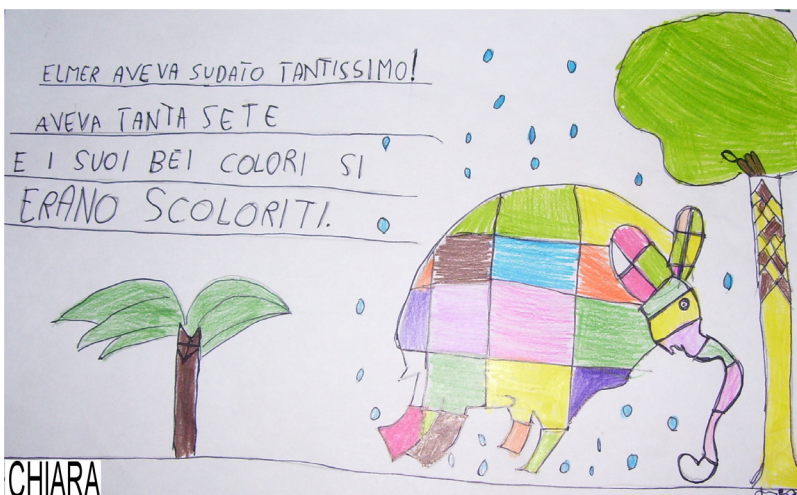 ELMER AVEVA SUDATO TANTISSIMO!
AVEVA TANTA SETE
E I SUOI BEI COLORI SI
ERANO SCOLORITI.
CHIARA